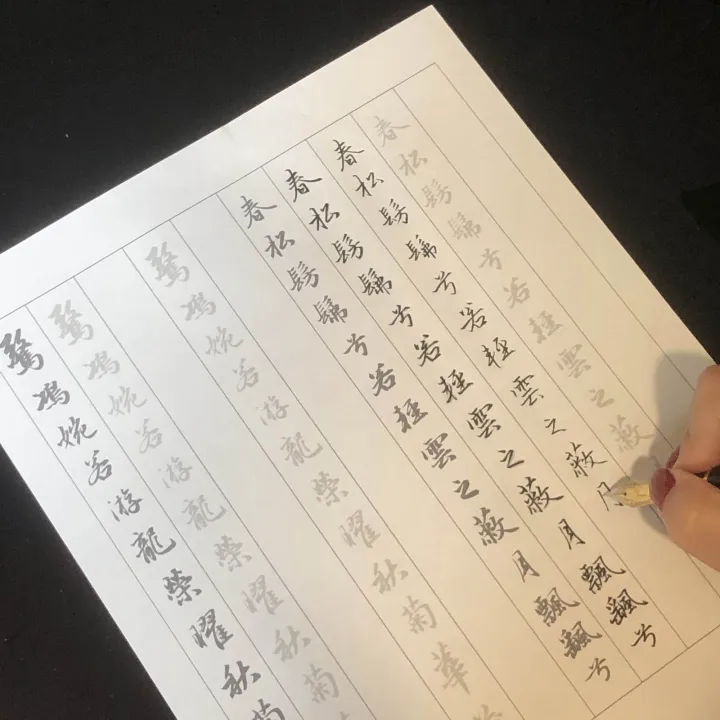 春松髣髴兮若輕雲之蔽
春松髣髴兮若輕雲之蔽月
春松髣髴兮若輕雲之蔽月飄颻兮
春松髣髴兮若輕雲之蔽月飄颻兮
驚鴻婉若游龍榮曜秋菊華
驚鴻婉若游龍榮曜秋菊
驚鴻婉若游龍榮曜秋菊